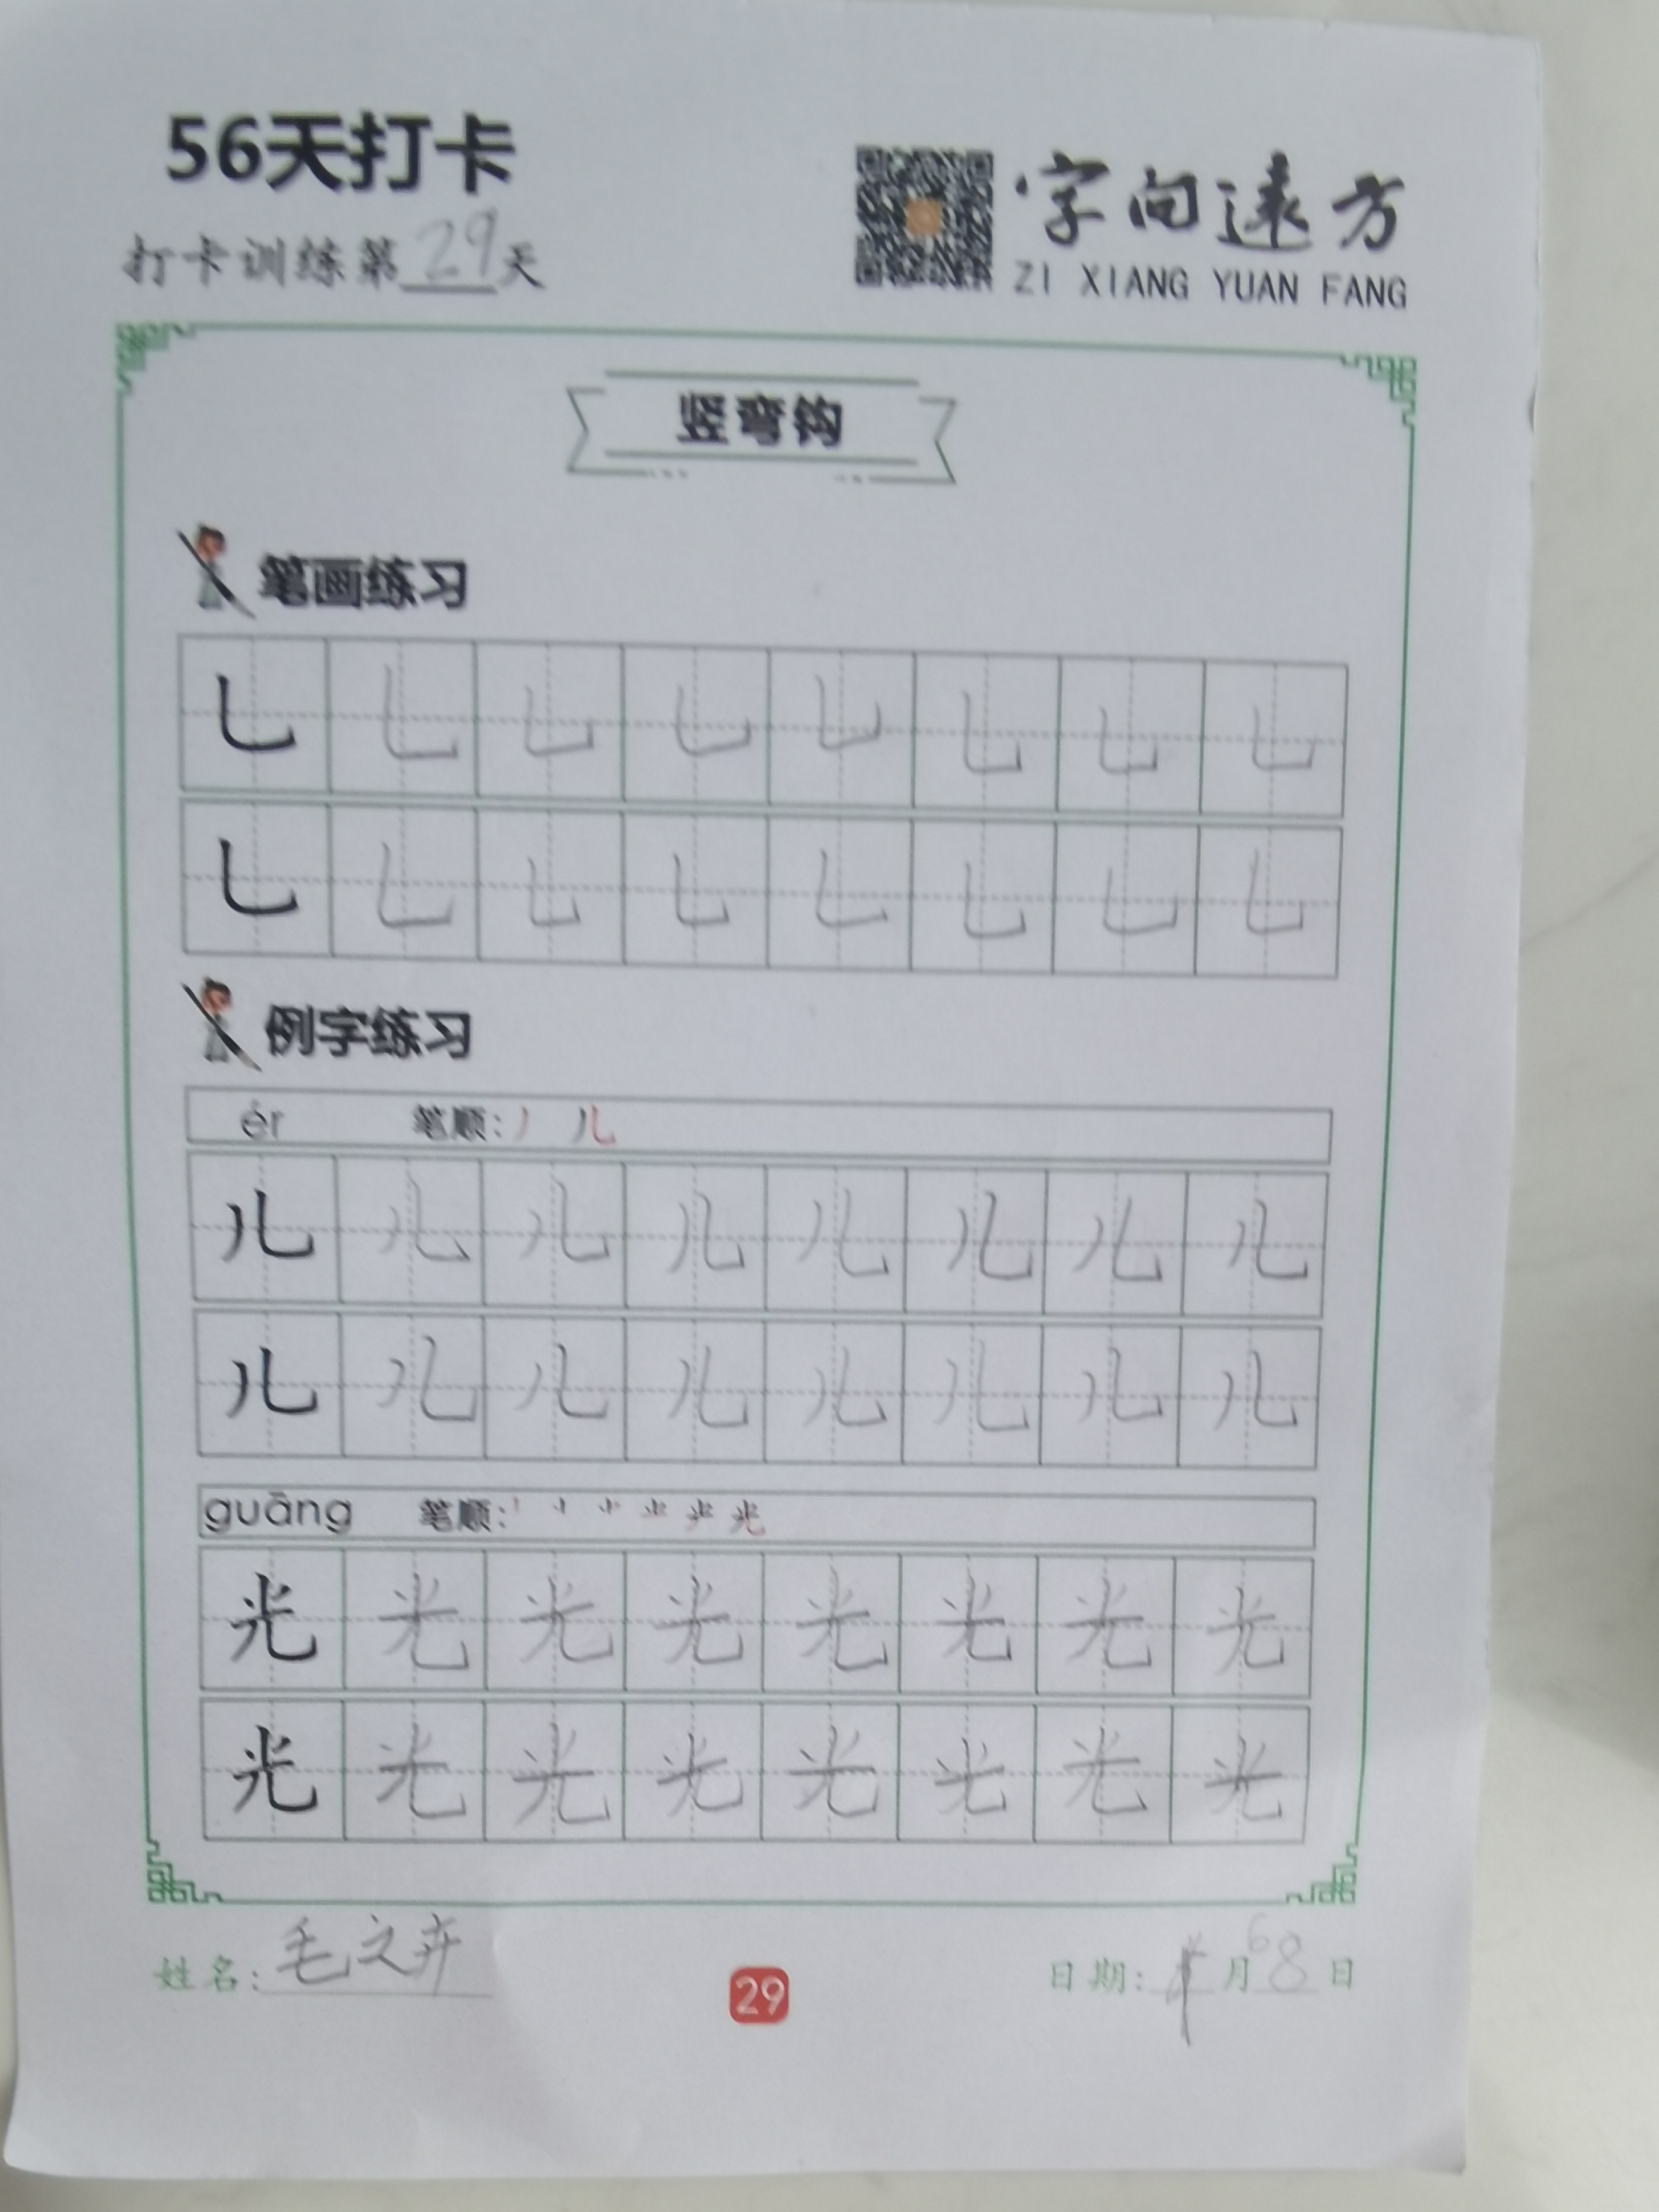 56天打卡
打卡训练第29天
字向远方
ZI XIANG YUAN FANG
竖弯钩
笔画练习
乚 乚 乚 乚 乚 乚 乚 乚
乚 乚 乚 乚 乚 乚 乚 乚
例字练习
ér 笔顺: 丿 儿
儿 儿 儿 儿 儿 儿 儿 儿
儿 儿 儿 儿 儿 儿 儿 儿
guāng 笔顺:
光 光 光 光 光 光 光 光
光 光 光 光 光 光 光 光
姓名: 毛之卉
29
日期: 月68日